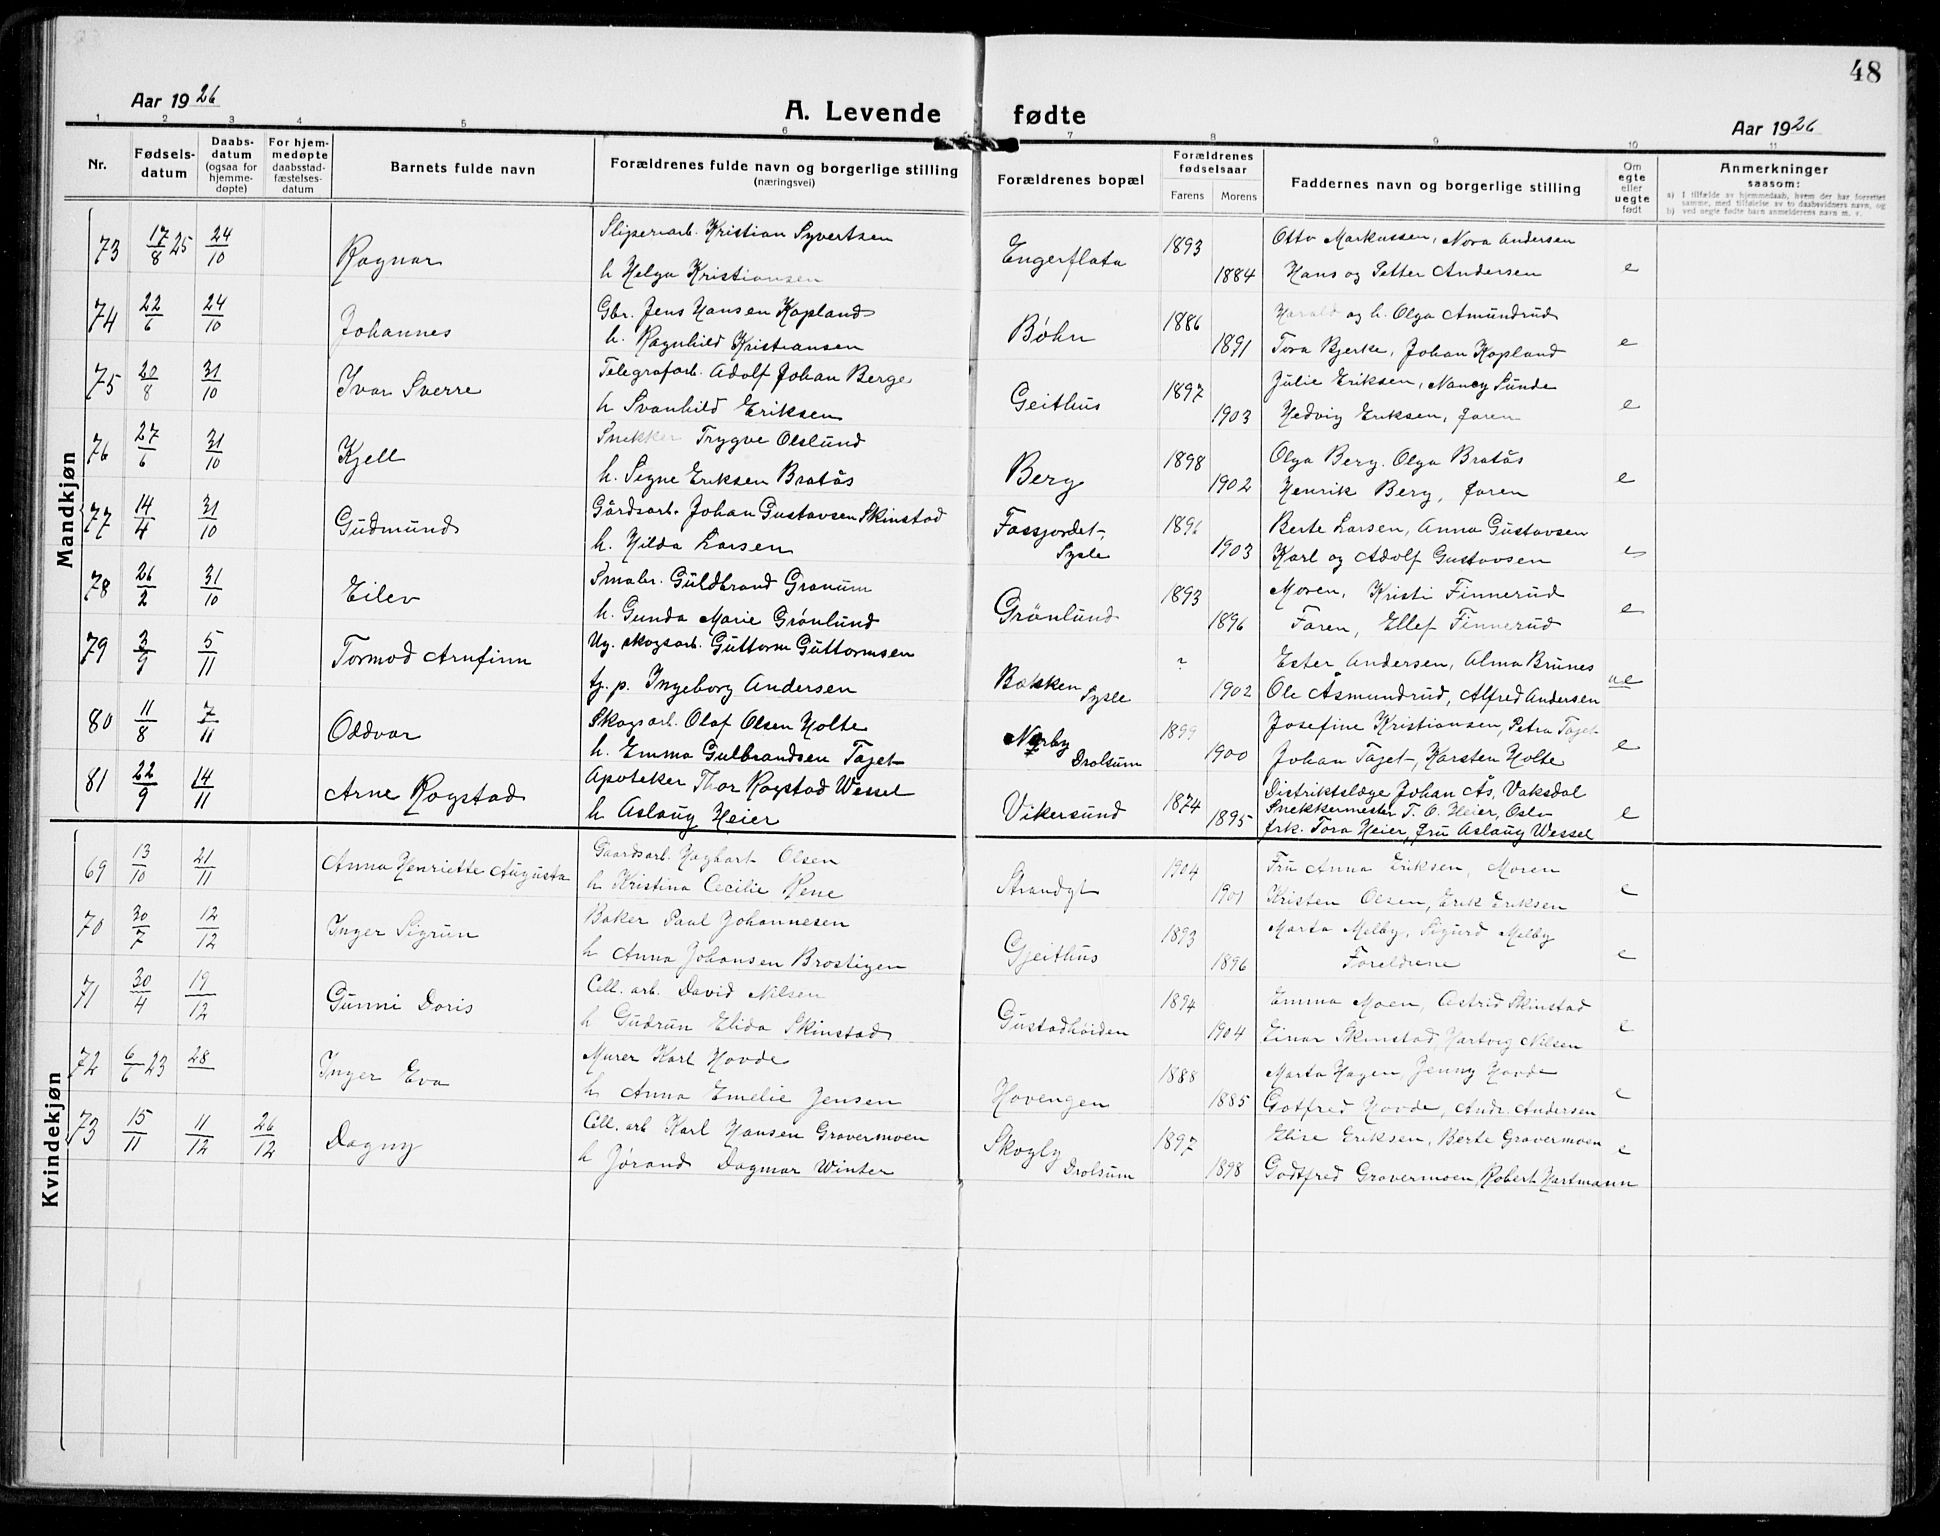 48
Aar 1926
A. Levende fødte
Aar 1926
1 2 3 4 5 6 7 8 9 10 11
Nr.
Fødsels-
datum
Daabs-
datum
(ogsaa for
hjemme-
døpte)
For hjem-
medøpte
daabsstad-
fæstelses-
datum
Barnets fulde navn
Forældrenes fulde navn og borgerlige stilling
(næringsvei)
Forældrenes bopæl
Forældrenes
fødselsaar
Farens Morens
Faddernes navn og borgerlige stilling
Om
egte
eller
uegte
født
Anmerkninger
saasom:
a) I tilfælde av hjemmedaab, hvem der har forrettet
samme, med tilføielse av to daabsvidners navn, og
b) ved uegte fødte barn anmelderens navn m. v.
Mandkjøn
73 17/8 25 24/10 Ragnar Sliperiarb. Kristian Syvertsen Engerflata 1893 Otto Markussen, Nora Andersen
h Helga Kristiansen 1884 Hans og Petter Andersen e
74 22/6 24/10 Johannes Gbr. Jens Hansen Kopland Bøhn 1886 Harald og h. Olga Amundrud
h. Ragnhild Kristiansen 1891 Tora Bjerke, Johan Kopland e
75 20/8 31/10 Ivar Sverre Telegrafarb. Adolf Johan Berge Geithus 1897 Julie Eriksen, Nancy Sunde
h Svanhild Eriksen 1903 Hedvig Eriksen, faren e
76 27/6 31/10 Kjell Snekker Trygve Olslund Berg 1898 Olga Berg. Olga Bratås
h. Signe Eriksen Bratås 1902 Henrik Berg, faren e
77 14/4 31/10 Gudmund Gårdsarb. Johan Gustavsen Skinstad Fossjordet, 1896 Berte Larsen, Anna Gustavsen
h. Hilda Larsen Sysle 1903 Karl og Adolf Gustavsen e
78 26/2 31/10 Eilev Småbr. Guldbrand Granum Grönlund 1893 Moren, Kristi Finnerud
h. Gunda Marie Grønlund 1896 Faren, Ellef Finnerud e
79 3/9 5/11 Tormod Arnfinn Ug. skogsarb. Guttorm Guttormsen Bækken ? Ester Andersen, Alma Brunes
tj. p. Ingeborg Andersen Sysle 1902 Ole Åsmundrud, Alfred Andersen ue
80 11/8 7/11 Oddvar Skogsarb. Olaf Olsen Holte Nørby 1899 Josefine Kristiansen, Petra Tajet
h. Emma Gulbrandsen Tajet Drolsum 1900 Johan Tajet, Karsten Holte e
81 22/9 14/11 Arne Rogstad Apoteker Thor Rogstad Wessel Vikersund 1874 Distriktslæge Johan Ås, Vaksdal
h Aslaug Heier 1895 Snekkermester T. O. Heier, Oslo e
frk. Tora Heier, fru Aslaug Wessel
Kvindekjøn
69 13/10 21/11 Anna Henriette Augusta Gaardsarb. Hagbart Olsen Strandgt 1904 Fru Anna Eriksen, Moren
h Kristina Cecilie Rene 1901 Kristen Olsen, Erik Eriksen e
70 30/7 12/12 Inger Sigrun Baker Paul Johannesen Gjeithus 1893 Marta Melby, Sigurd Melby
h Anna Johansen Brostigen 1896 Foreldrene e
71 30/4 19/12 Gunni Doris Cell. arb. David Nilsen Gustadhøiden 1894 Emma Moen, Astrid Skinstad
h Gudrun Elida Skinstad 1904 Einar Skinstad, Hartvig Nilsen e
72 6/6 23 28 Inger Eva Murer Karl Hovde Hovengen 1888 Marta Hagen, Jenny Hovde
h Anna Emelie Jensen 1885 Gotfred Hovde, Andr. Andersen e
73 15/11 11/12 26/12 Dagny Cell. arb Karl Hansen Gravermoen Skogly 1897 Elise Eriksen, Berte Gravermoen
h Jørand Dagmar Winter Drolsum 1898 Godtfred Gravermoen, Robert Hartmann e